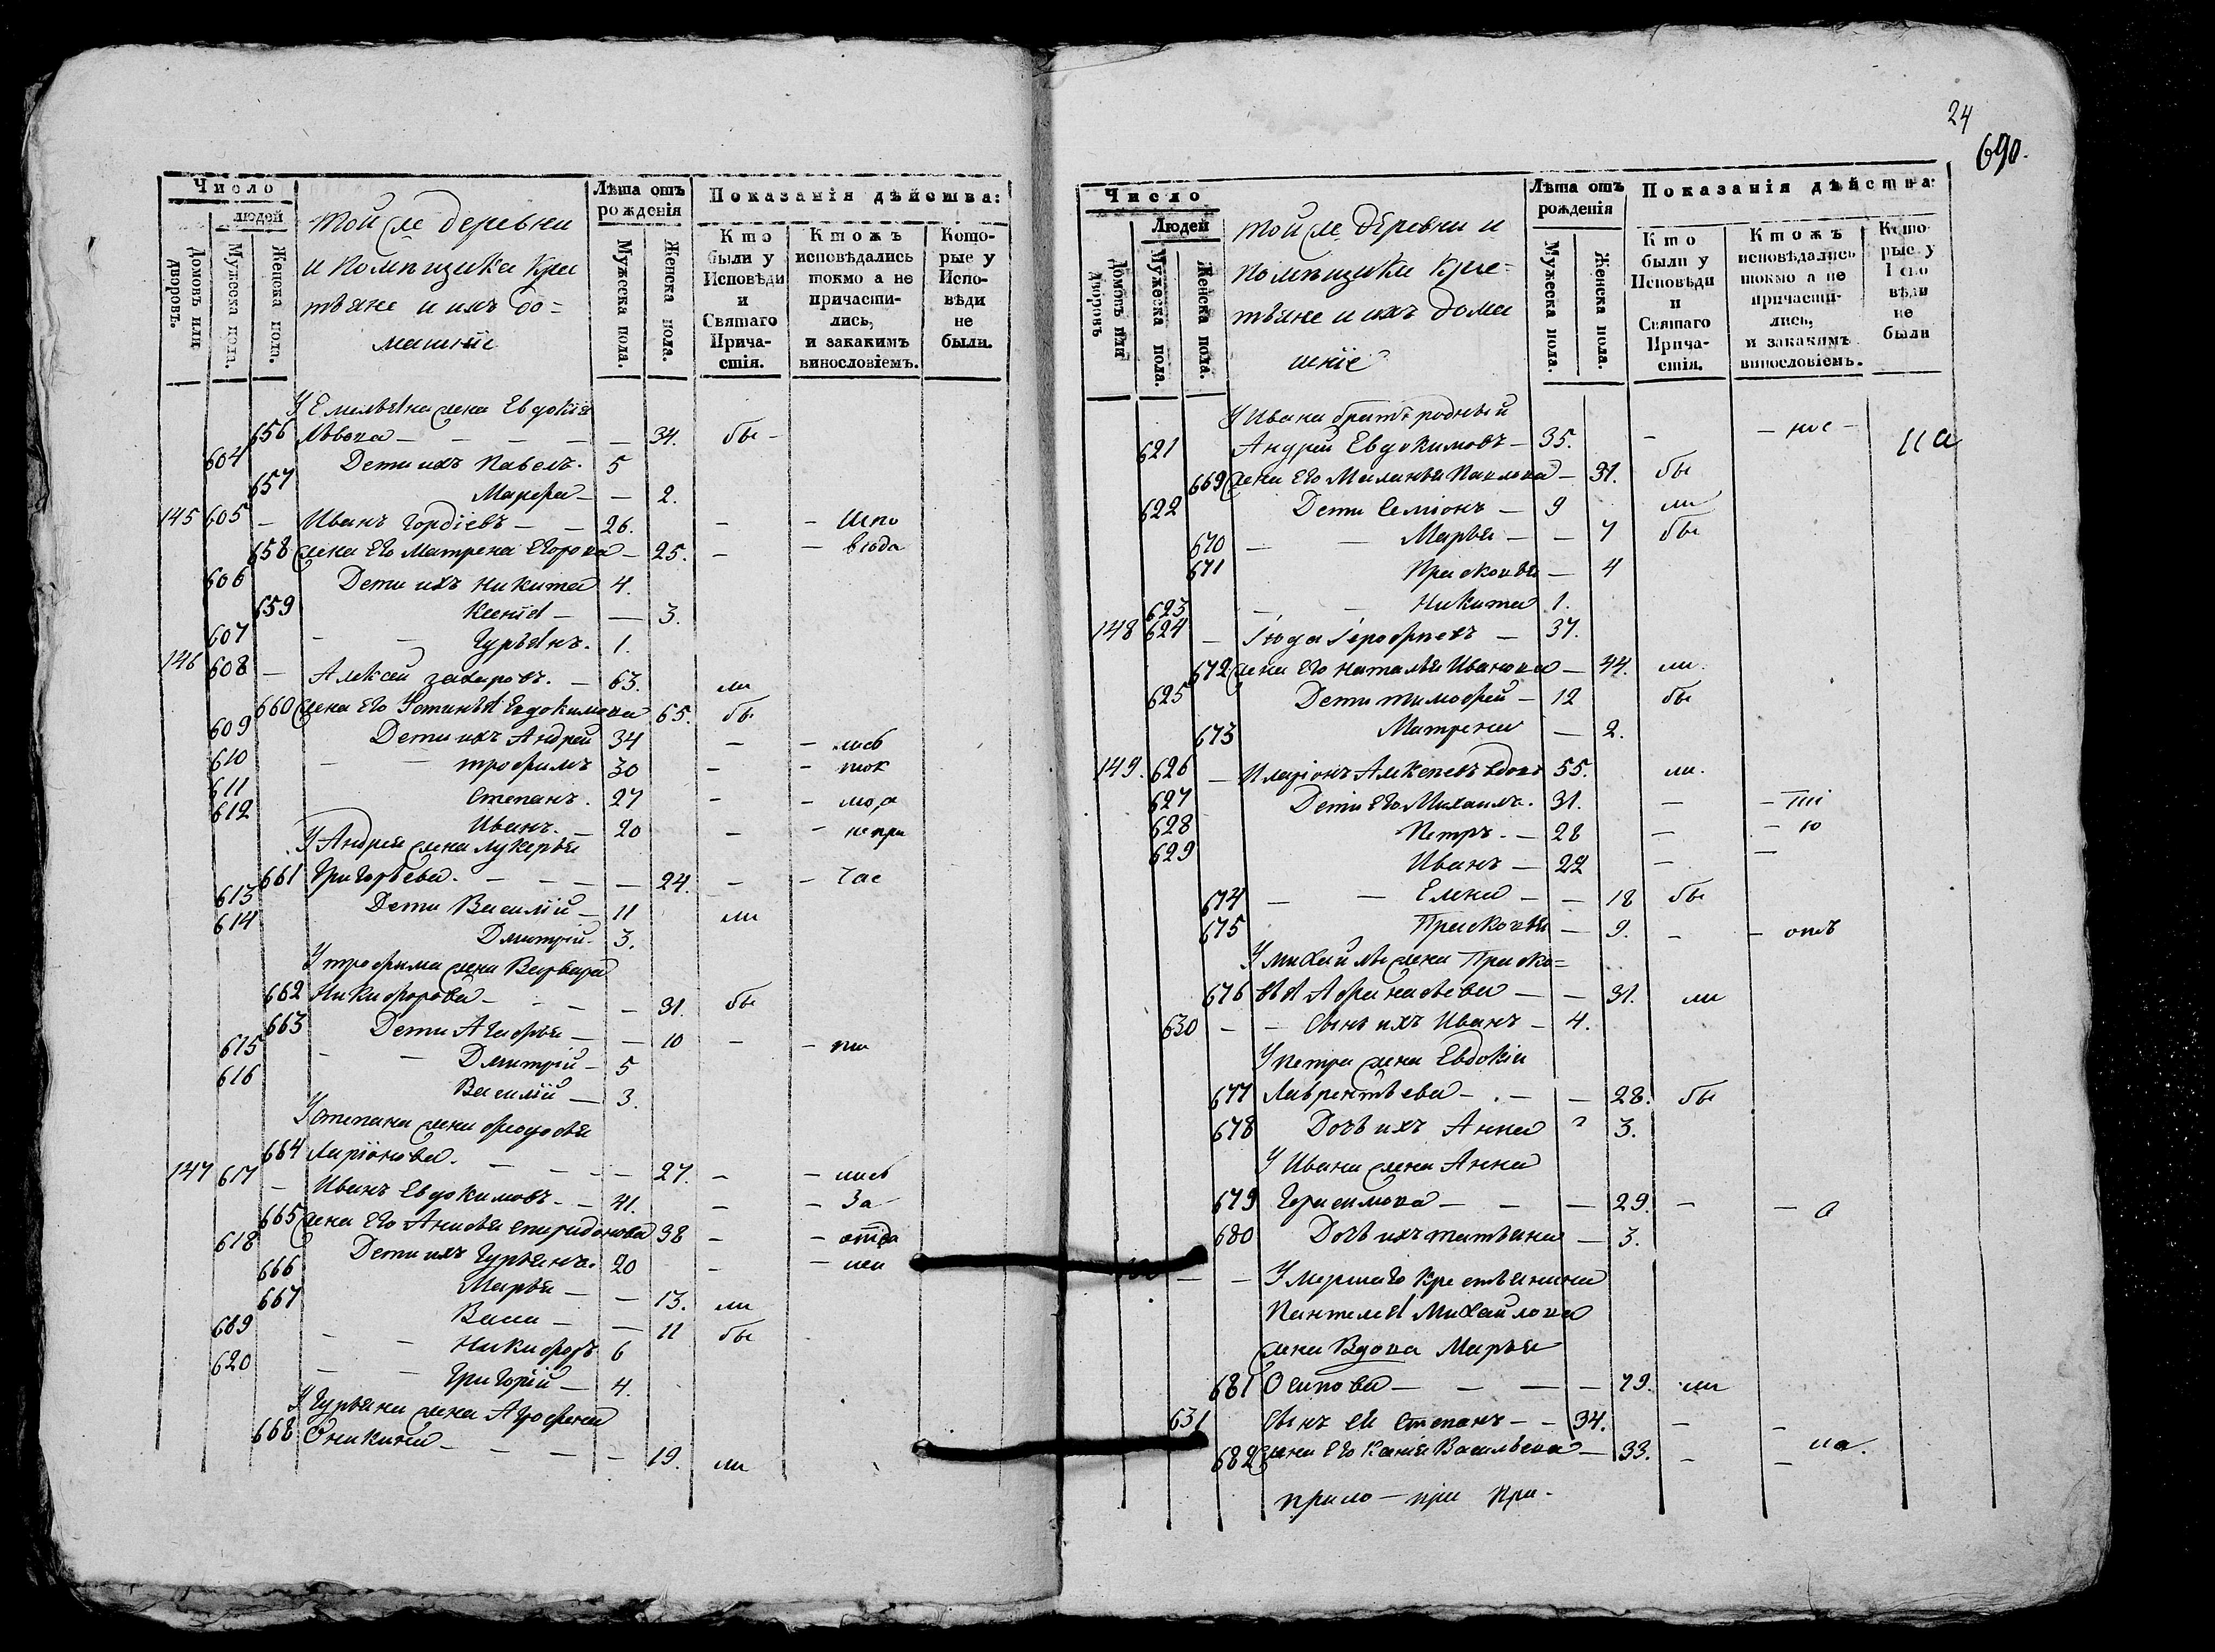 Число
людей
Домовъ или дворовъ.
Мужеска пола.
Женска пола.
той же деревни
и помѣщика кре
стьяне и ихъ до=
машніе
Лѣта отъ рожденія
Мужеска пола.
Женска пола.
Показанія дѣйства:
Кто были у Исповѣди и Святаго Причастія.
Ктожъ исповѣдались токмо а не причастились, и закакимъ винословіемъ.
Которые у Исповѣди не были.
У Емельяна жена Евдокія
656 Львова — 34. бы
604 Дети ихъ Павелъ. 5
657 Марфа — 2.
145 605 — Иванъ Гордіевъ — 26. — — Испо
658 жена Его Матрена Егорова — 25. — —
606 Дети ихъ Никита 4.
659 Ксенія — 3.
607 — — Гурьянъ. 1.
146 608 — Алексей Захаровъ. — 63. ли
660 жена Его Устинья Евдокимова 65. бы
609 Дети ихъ Андрей 34 — — лись
610 — — трофимъ 30 — — ток
611 Степанъ. 27 — — мо, а
612 Иванъ. — 20 — — непри
У Андрея жена Лукерья
661 Григорьева. — 24. — — час
613 Дети Василій — 11 ли
614 Дмитрій. 3.
У трофима жена Варвара
662 Никифорова — 31. бы
663 Дети Агафья — 10 — — ти
615 — — Дмитрій — 5
616 Василій — 3.
У степана жена феодосья
664 Ларіонова. — 27. — — лись
147 617 — Иванъ Евдокимовъ — 41. — — За
665 жена Его Анисья спиридонова 38 — —
618 Дети ихъ Гурьянъ. 20 — —
666 Марья — 13. ли
667 Васса — 11 бы
619 — — Никифоръ 6
620 — — Григорій — 4.
У Гурьяна жена Аграфена
668 Оникина — 19. ли
24
690.
Число
Людей
Домовъ или дворовъ
Мужеска пола.
Женска пола.
той же деревни и
помѣщика кре=
стьяне и ихъ дома
шніе
Лѣта отъ рожденія
Мужеска пола.
Женска пола.
Показанія дѣйства:
Кто были у Исповѣди и Святаго Причастія.
Ктожъ исповѣдались токмо а не причастились, и закакимъ винословіемъ.
Которые у Исповѣди не были
У Ивана братъ родный
621 Андрей Евдокимовъ — 35. — —
669 жена Его Маланья Павлова — 31. бы
622 Дети Семіонъ — 9 ли
670 — — Марья — 7 бы
671 Прасковья — 4
623 — — Никита 1.
148 624 — Іюда Іерофиевъ — 37.
672 жена Его Наталья Иванова — 44. ли.
625 Дети тимофей — 12 бы
673 Матрена — 2.
149. 626 — Иларіонъ Алексеевъ вдовъ 55. ли.
627 Дети Его Михаилъ. 31. — —
628 Петръ. — 28 — — ю
629 Иванъ — 22 — —
674 — — Елена — 18 бы
675 Прасковья — 9. — — отъ
У михайлы жена Праско=
676 вья Афанасьева — 31. ли
630 — — Сынъ ихъ Иванъ — 4.
У петра жена Евдокія
677 Лаврентьева — 28. бы
678 Дочь ихъ Анна 3.
У Ивана жена Анна
679 Герасимова — 29. — — а
680 Дочь ихъ татьяна — 3.
— — Умершаго крестьянина
Пантелея Михайлова
жена Вдова Марья
681 Осипова — 79. ли
631 Сынъ ей Степанъ — 34. — —
682 жена Его Ксенія Васильева — 33. — —